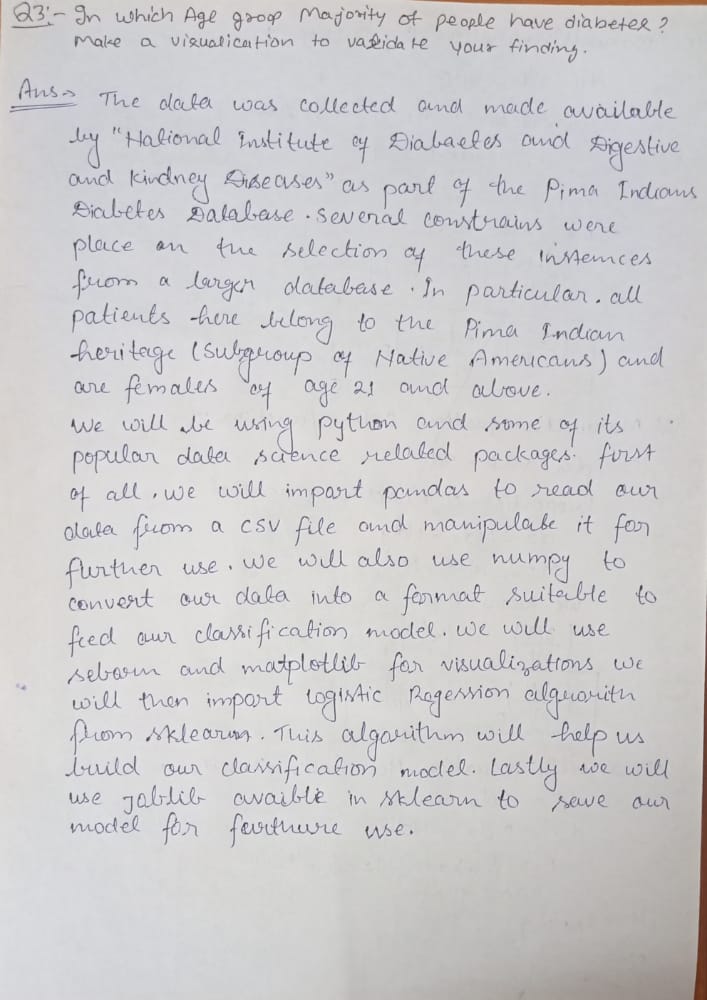 Q3:- In which Age groop Majority of people have diabetes?
Make a visualication to validate your finding.
Ans→ The data was collected and made available
by "National Institute of Diabaetes and Digestive
and Kindney Diseases" as part of the Pima Indians
Diabetes Database. Several constrains were
place on the selection of these instences
from a larger database. In particular. all
patients here belong to the Pima Indian
heritage (subgroup of Native Americans) and
are females of age 21 and above.
We will be using python and some of its
popular data science related packages. first
of all, we will import pandas to read our
data from a CSV file and manipulate it for
further use. We will also use numpy to
convert our data into a format suiteble to
feed our classification model. We will use
seborn and matplotlib for visualizations we
will then import logistic Ragession alguorith
from sklearn. This algorithm will help us
build our classification model. Lastly we will
use Joblib avaible in sklearn to save our
model for farthure use.